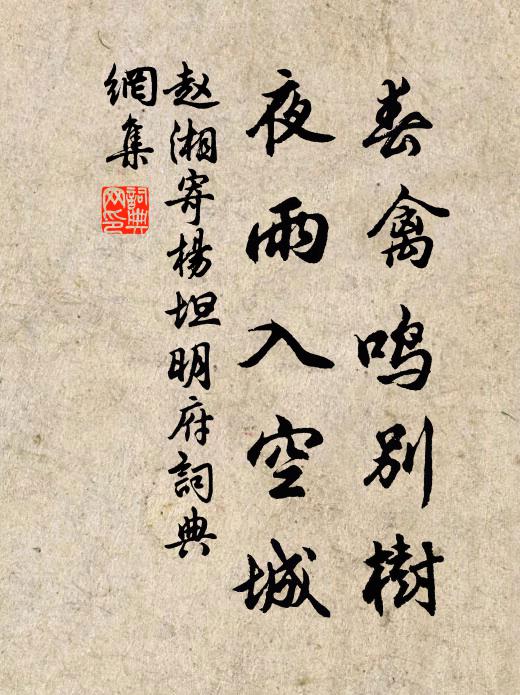 春禽鸣别樹
夜雨入空城
赵湘寄楊坦明府詞典
網集
詞典網印